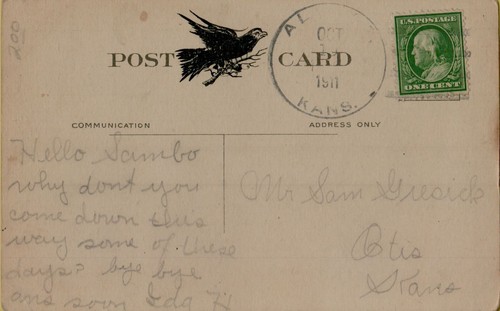 200
POST CARD
AL
OCT
1911
KANS.
U.S. POSTAGE
ONE CENT
COMMUNICATION
ADDRESS ONLY
Hello Sambo
why dont you
come down this
way some of these
days? bye bye
ans soon Ida H
Mr Sam Giesick
Otis
Kans